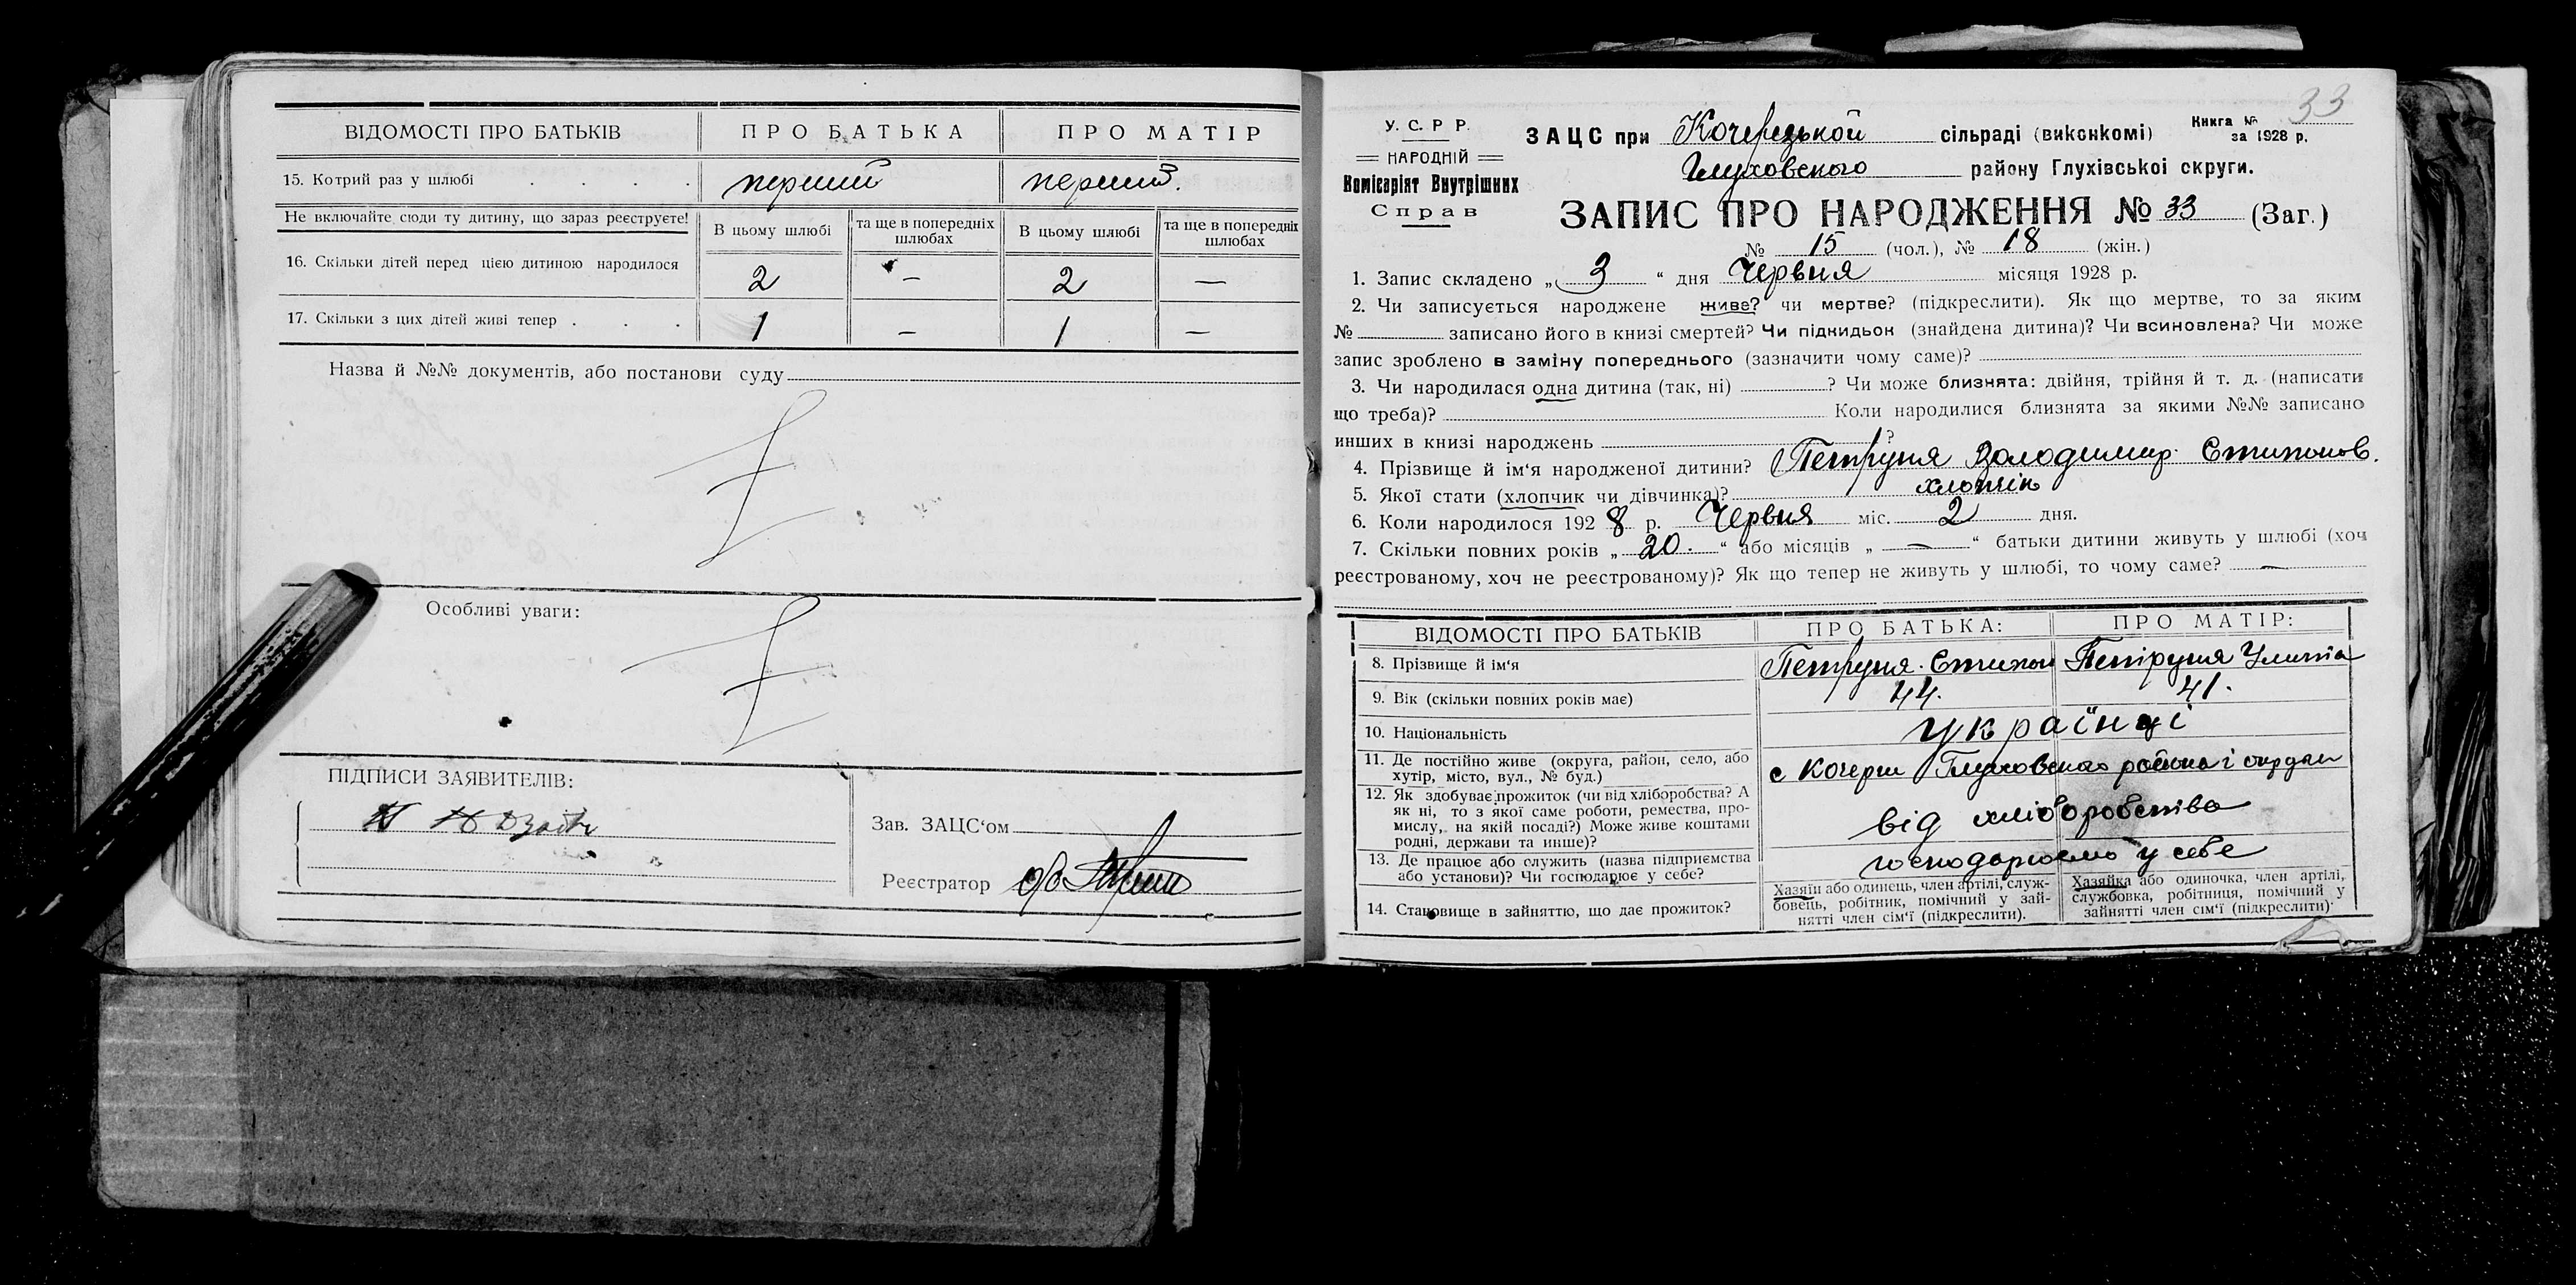 ВІДОМОСТІ ПРО БАТЬКІВ
ПРО БАТЬКА
ПРО МАТІР
15. Котрий раз у шлюбі
перший
перший.
Не включайте сюди ту дитину, що зараз реєструєте!
В цьому шлюбі
та ще в попередніх шлюбах
В цьому шлюбі
та ще в попередніх шлюбах
16. Скільки дітей перед цією дитиною народилося
2 — 2 —
17. Скільки з цих дітей живі тепер
1 — 1 —
Назва й №№ документів, або постанови суду
Особливі уваги:
ПІДПИСИ ЗАЯВИТЕЛІВ:
Зав. ЗАЦС‘ом
Реєстратор
33
У. С. Р. Р.
НАРОДНІЙ
Комісаріят Внутрішних
Справ
ЗАЦС при Кочерезької сільраді (виконкомі)
Книга №
за 1928 р.
Глуховского району Глухівської округи.
ЗАПИС ПРО НАРОДЖЕННЯ № 33 (Заг.)
№ 15 (чол.), № 18 (жін.)
1. Запис складено „ 3 “ дня Червня місяця 1928 р.
2. Чи записується народжене живе? чи мертве? (підкреслити). Як що мертве, то за яким
№ записано його в книзі смертей? Чи підкидьок (знайдена дитина)? Чи всиновлена? Чи може
запис зроблено в заміну попереднього (зазначити чому саме)?
3. Чи народилася одна дитина (так, ні) ? Чи може близнята: двійня, трійня й т. д. (написати
що треба)? Коли народилися близнята за якими №№ записано
инших в книзі народжень ?
4. Прізвище й ім‘я народженої дитини? Петруня Володимир
5. Якої стати (хлопчик чи дівчинка)? хлопчик
6. Коли народилося 1928 р. Червня міс. 2 дня.
7. Скільки повних років „ 20. “ або місяців „ — “ батьки дитини живуть у шлюбі (хоч
реєстрованому, хоч не реєстрованому)? Як що тепер не живуть у шлюбі, то чому саме? —
ВІДОМОСТІ ПРО БАТЬКІВ
ПРО БАТЬКА:
ПРО МАТІР:
8. Прізвище й ім‘я
Петруня
Петруня Улита
9. Вік (скільки повних років має)
44.
41.
10. Національність
українці
11. Де постійно живе (округа, район, село, або
хутір, місто, вул., № буд.)
с Кочерги Глуховского района і
12. Як здобуває прожиток (чи від хліборобства? А
як ні, то з якої саме роботи, ремества, про-
мислу, на якій посаді?) Може живе коштами
родні, держави та инше)?
від хліборобства
13. Де працює або служить (назва підприємства
або установи)? Чи господарює у себе?
господарюємо у себе
14. Становище в зайняттю, що дає прожиток?
Хазяїн або одинець, член артілі, служ-
бовець, робітник, помічний у зай-
нятті член сім‘ї (підкреслити).
Хазяйка або одиночка, член артілі,
службовка, робітниця, помічний у
зайнятті член сім‘ї (підкреслити).